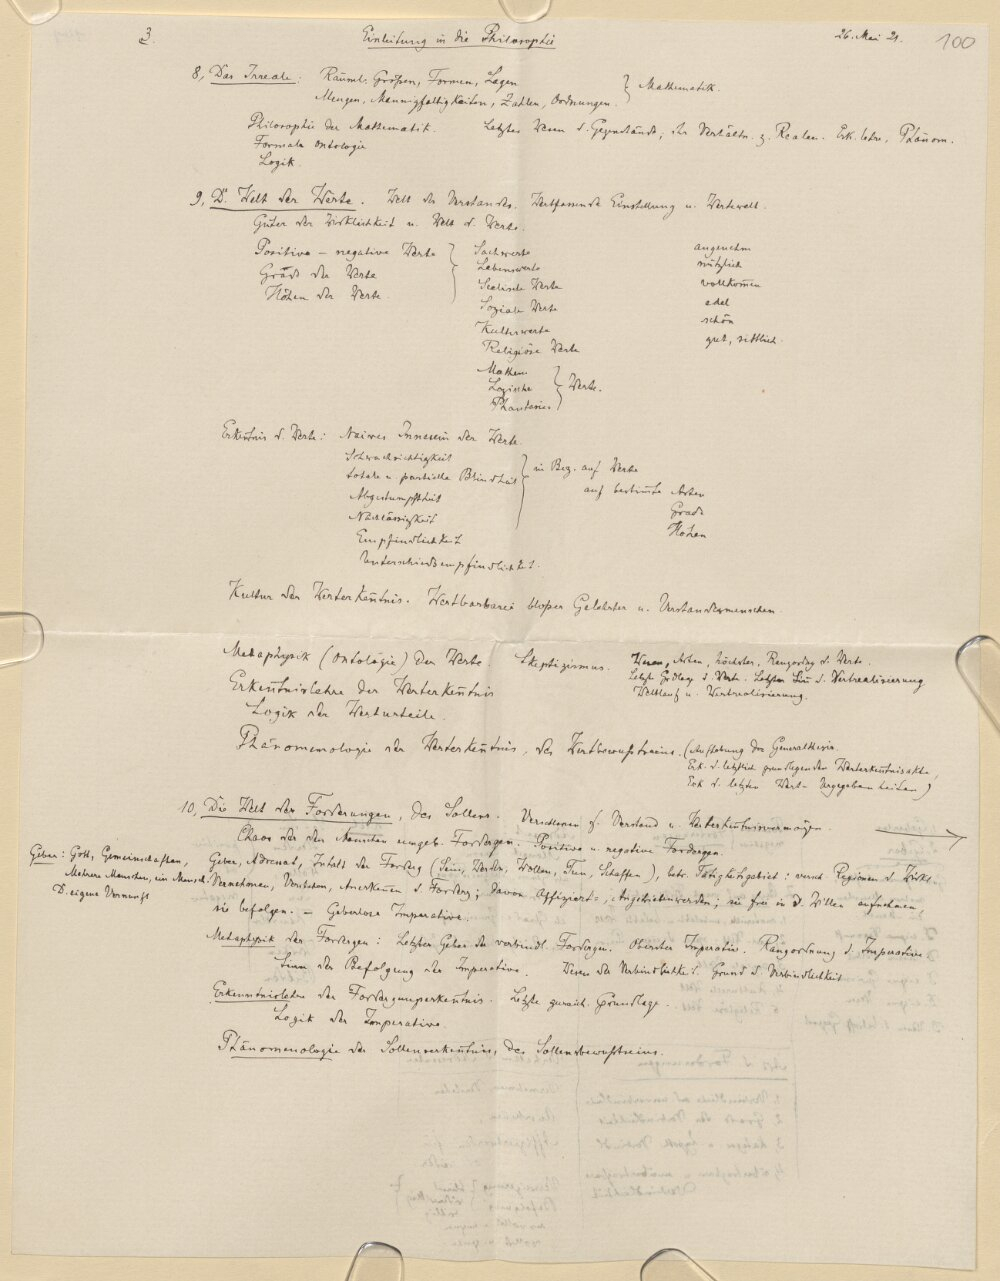 3. Einleitung in die Philosophie 26. Mai 21. 100
8, Das Irreale: Räuml. Größen, Formen, Lagen } Mathematik.
Mengen, Mannigfaltigkeiten, Zahlen, Ordnungen.
Philosophie der Mathematik. Letztes Wesen d. Gegenstände, ihr Verhältn. z. Realen. Erk.lehre, Phänom.
Formale Ontologie
Logik.
9, D. Welt der Werte. Welt des Verstandes. Wertfassende Einstellung u. Wertewelt.
Güter der Wirklichkeit u. Welt d. Werte.
Positive – negative Werte } Sachwerte angenehm
Grade der Werte Lebenswerte nützlich
Höhen der Werte. Seelische Werte vollkom̄en
Soziale Werte edel
Kulturwerte schön
Religiöse Werte gut, sittlich.
Mathem.
Logische } Werte.
Phantasie
Erken̄tnis d. Werte: Naives Innesein der Werte.
Schwachsichtigkeit } in Bez. auf Werte
totale u. partielle Blindheit auf bestim̄te Arten
Abgestumpftheit Grade
Nachlässigkeit Höhen
Empfindlichkeit
Unterschiedsempfindlichkeit.
Kultur der Werterken̄tnis. Wertbarbarei bloßer Gelehrter u. Verstandesmenschen.
Metaphysik (Ontologie) der Werte. Skeptizismus. Wesen, Arten, höchster, Rangordng d. Werte.
Letzte Grdlag d. Werte. Letzter Sin̄ d. Wertrealisierung
Weltlauf u. Wertrealisierung.
Erken̄tnislehre der Werterken̄tnis
Logik der Werturteile.
Phänomenologie der Werterken̄tnis, des Wertbewußtseins. (Aufhebung der Generalthesis.
Erk. d. letztlich grundlegenden Werterken̄tnisakte,
Erk. d. letzten Wert-Gegebenheiten)
10, Die Welt der Forderungen, des Sollens. Verschieden v. Verstand u. Werterken̄tnisvermögen.
Chaos der den Menschen umgeb. Forderungen. Positive u. negative Forderngen.
Geber: Gott, Gemeinschaften,
Mehrere Menschen, ein Mensch.
D. eigene Vernunft
Geber, Adressat, Inhalt der Forderg (Sein, Werden, Wollen, Tun, Schaffen), betr. Tätigkeitsgebiet: versch. Regionen d. Wirkl.
Vernehmen, Verstehen, Anerken̄en d. Forderg; davon Affiziert-, Angetriebenwerden; sie frei in d. Willen aufnehmen,
sie befolgen. – Geberlose Imperative.
Metaphysik der Forderngen: Letzter Geber der verbindl. Forderngen. Oberster Imperativ. Rangordnung d. Imperative.
Sin̄ der Befolgung der Imperative. Wesen der Verbindlichkt. Grund d. Verbindlichkeit
Erkenntnislehre der Forderungserken̄tnis. Letzte Grundlage.
Logik der Imperative.
Phänomenologie der Sollenserken̄tnis, des Sollensbewußtseins.